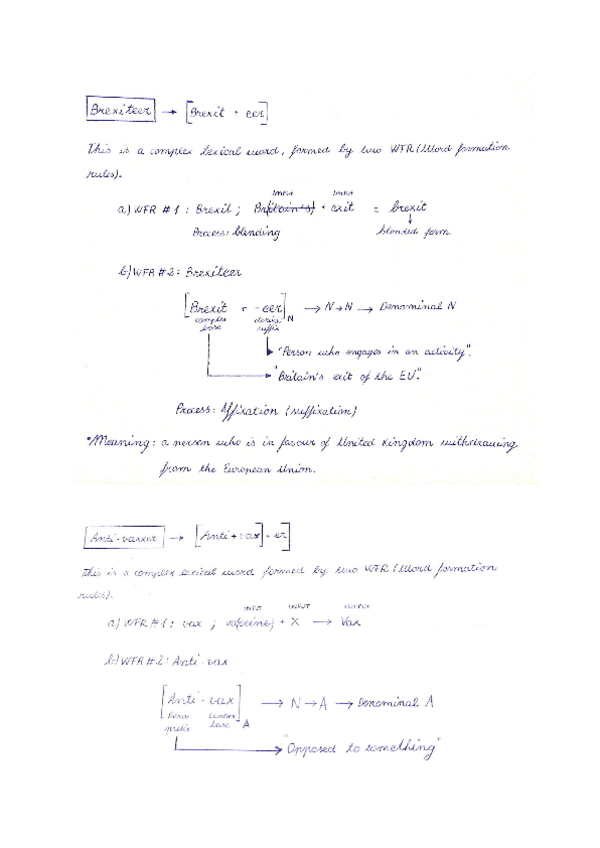 Brexiteer → [Brexit + eer]
This is a complex lexical word, formed by two WFR (Word formation
rules).
INPUT INPUT
a) WFR #1: Brexit; Br(itain's) + exit = brexit
Process: blending blended form.
b) WFR #2: Brexiteer
[Brexit + -eer]N → N→N → Denominal N
complex deriv.
base suffix
"Person who engages in an activity".
"Britain's exit of the EU".
Process: Affixation (suffixation)
*Meaning: a person who is in favour of United Kingdom withdrawing
from the European Union.
Anti-vaxxer → [[Anti + vax] + er]
This is a complex lexical word formed by two WFR (Word formation
rules).
INPUT INPUT OUTPUT
a) WFR #1: vax; va(ccine) + X → Vax
b) WFR #2: Anti-vax
[Anti - vax]A → N → A → Denominal A
Deriv. complex
prefix base
"Opposed to something"